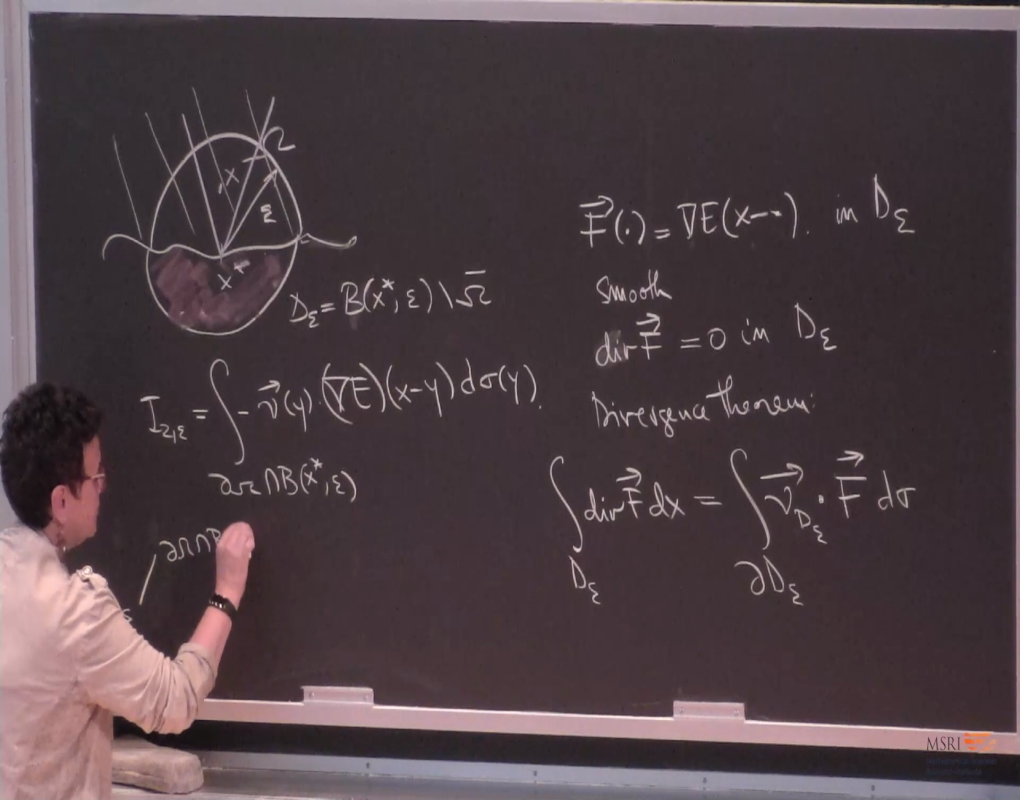 Ω
x
ε
x*
D_ε = B(x*, ε) \ Ω̄
I_{2,ε} = ∫ - ν⃗(y) · (∇E)(x-y) dσ(y).
∂Ω∩B(x*, ε)
∂Ω∩B
ε
F⃗(·) = ∇E(x-·). in D_ε
smooth
div F⃗ = 0 in D_ε
Divergence theorem:
∫ div F⃗ dx = ∫ ν⃗_{D_ε} · F⃗ dσ
D_ε ∂D_ε
MSRI